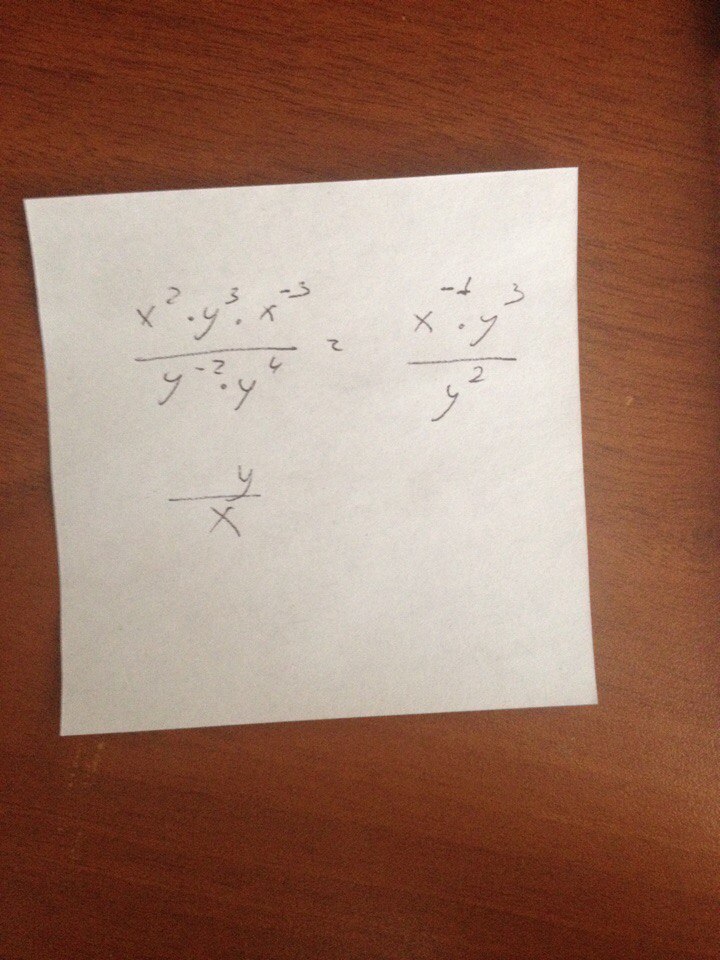 x² · y³ · x⁻³ / y⁻² · y⁴ = x⁻¹ · y³ / y²
y / x